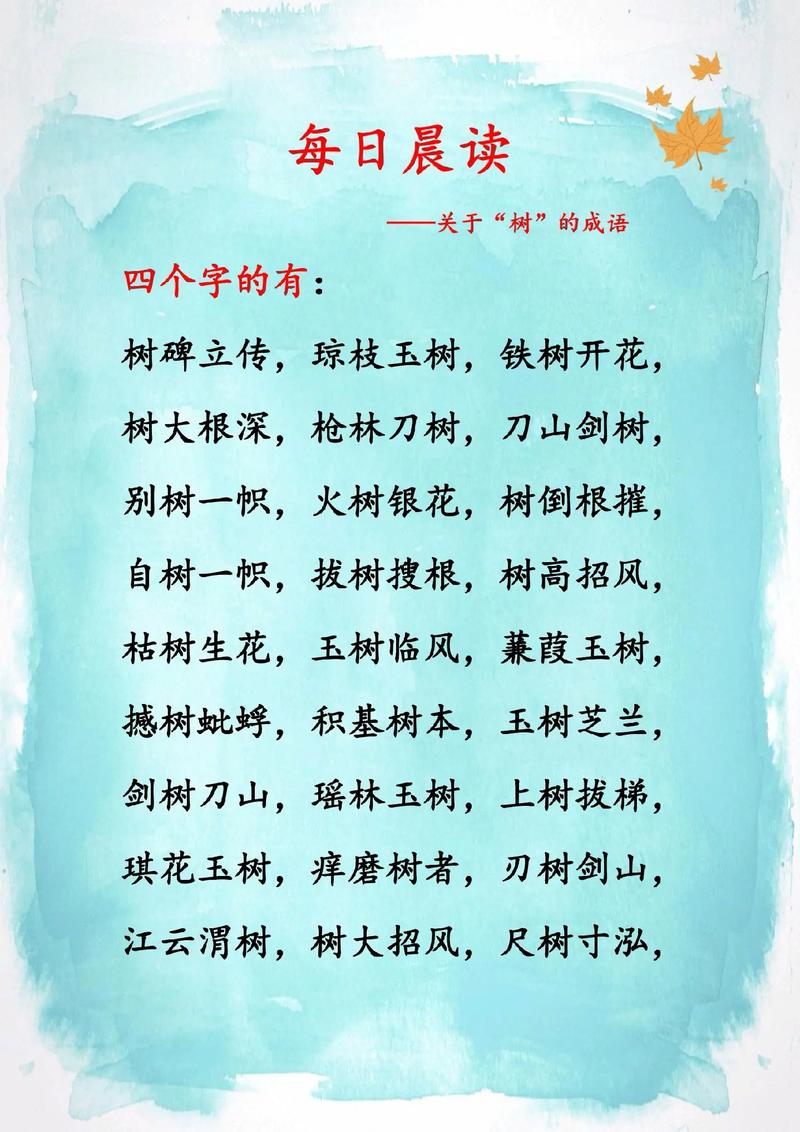 每日晨读
——关于“树”的成语
四个字的有：
树碑立传，琼枝玉树，铁树开花，
树大根深，枪林刀树，刀山剑树，
别树一帜，火树银花，树倒根摧，
自树一帜，拔树搜根，树高招风，
枯树生花，玉树临风，蒹葭玉树，
撼树蚍蜉，积基树本，玉树芝兰，
剑树刀山，瑶林玉树，上树拔梯，
琪花玉树，痒磨树者，刃树剑山，
江云渭树，树大招风，尺树寸泓，